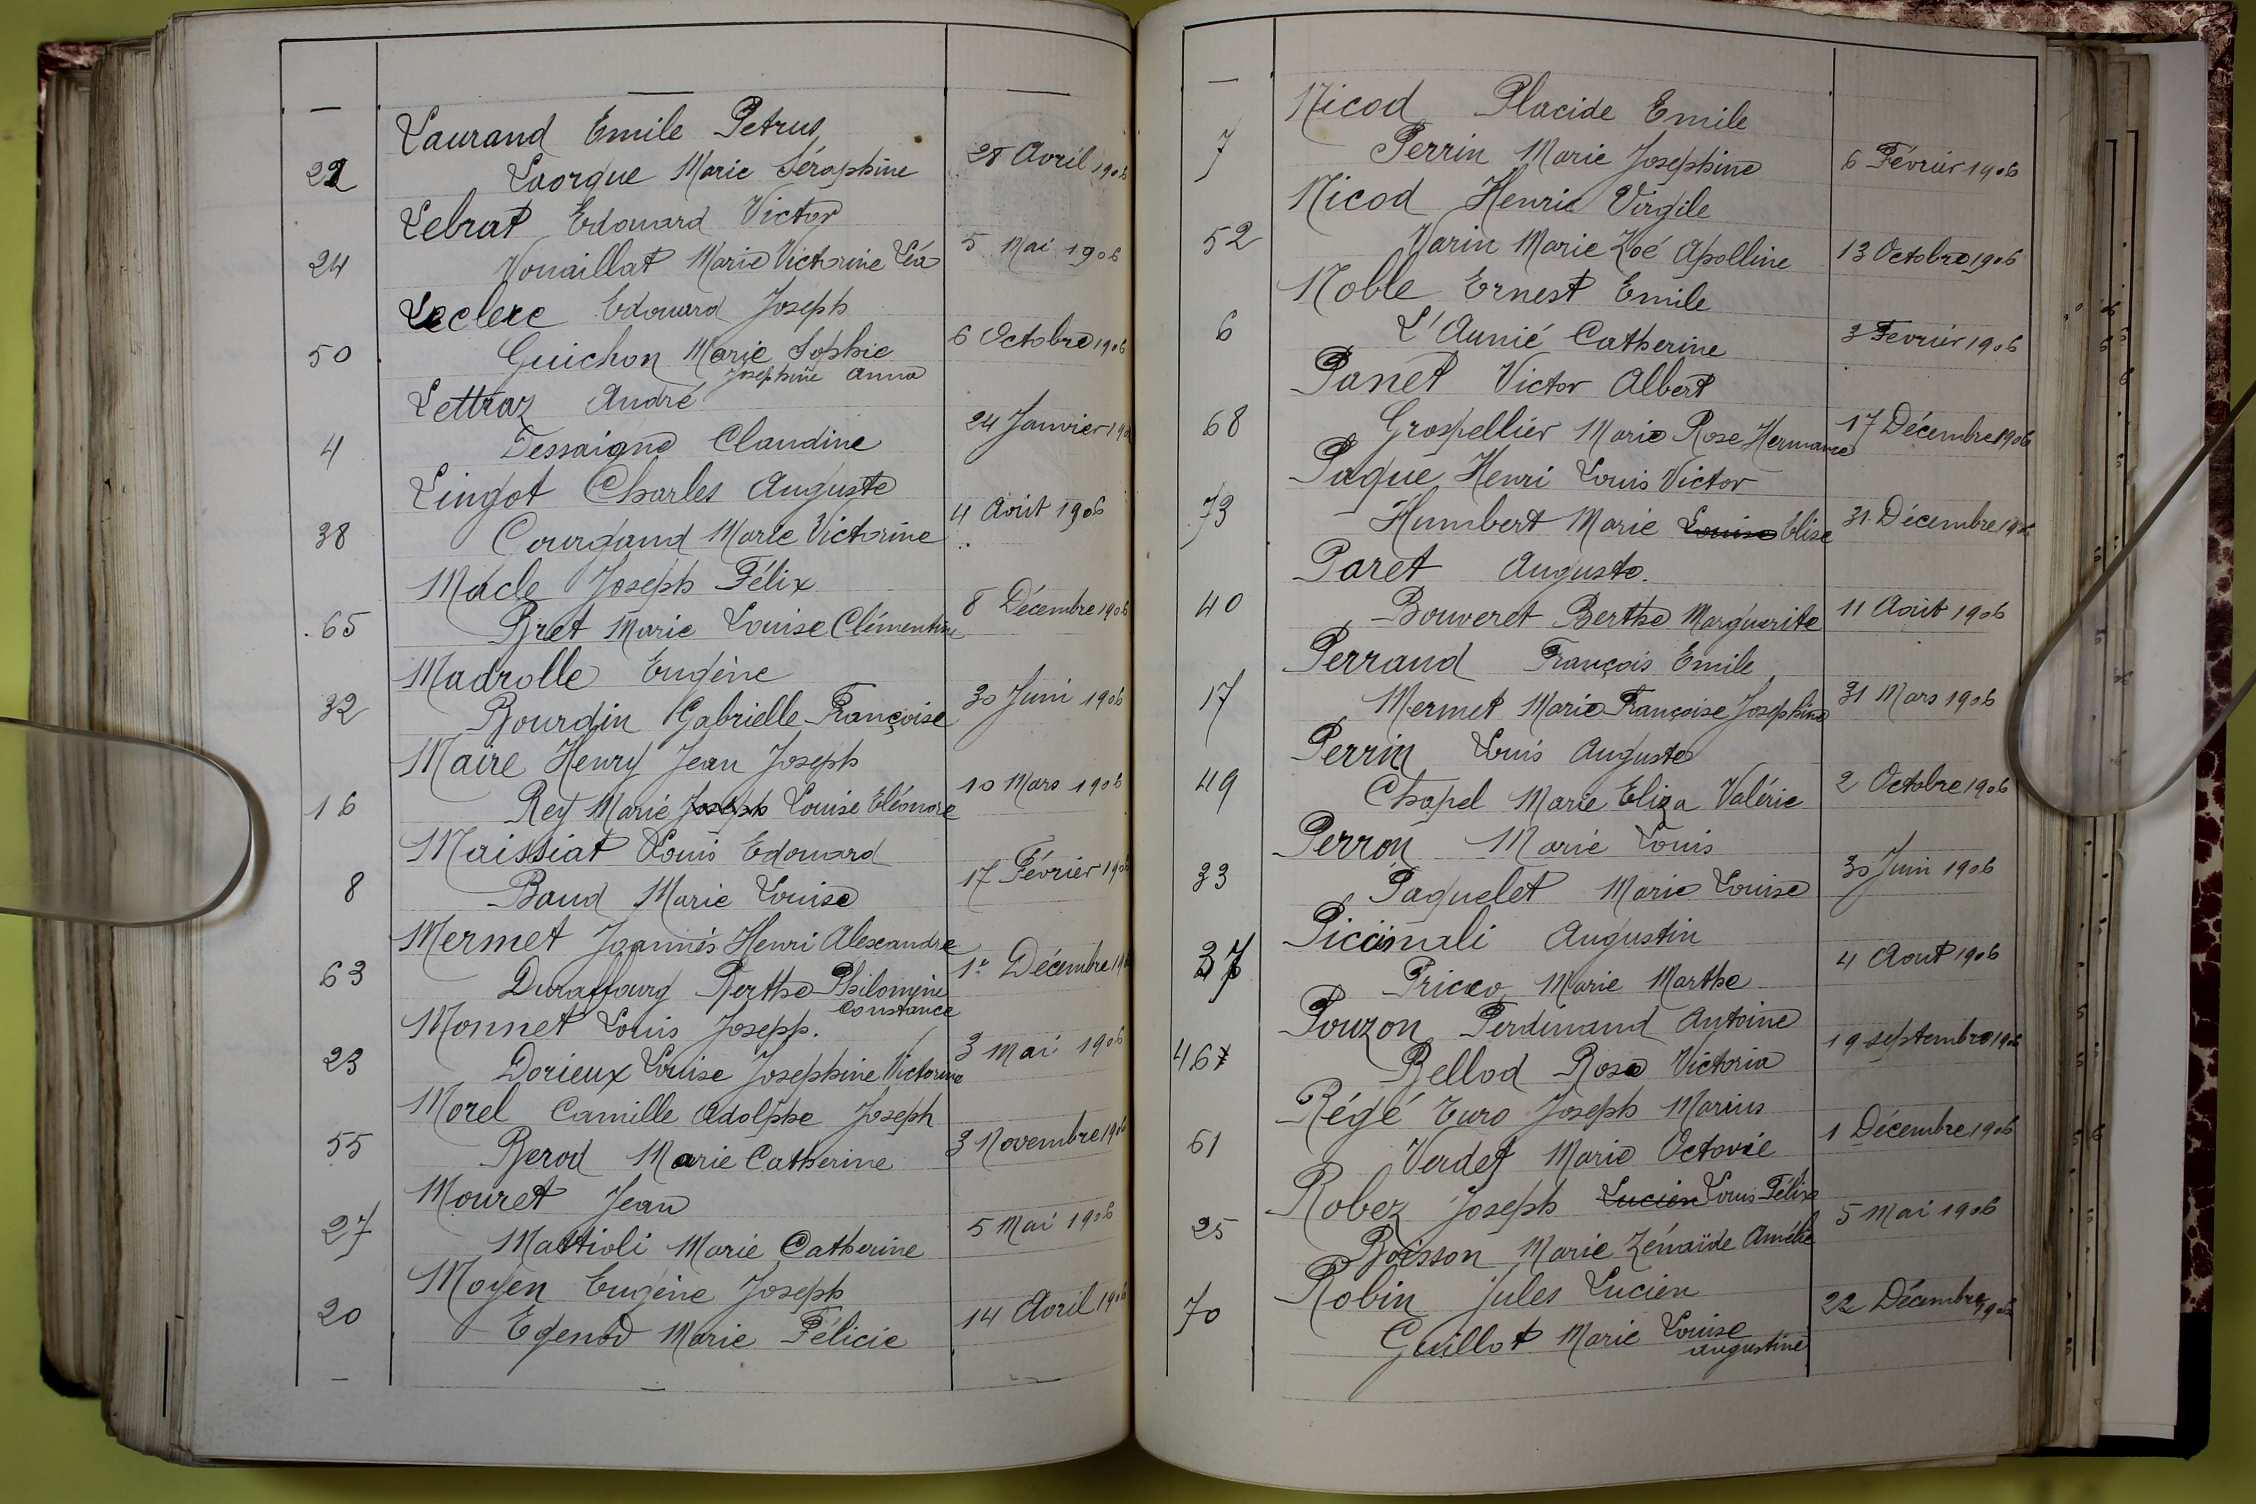 Laurand Emile Petrus
22 Lorgue Marie Séraphine 28 Avril 1906
Lebrat Edouard Victor
24 Vouaillat Marie Victorine Léa 5 Mai 1906
Leclerc Edouard Joseph
50 Guichon Marie Sophie 6 Octobre 1906
Josephine Anna
Lettraz André
4 Dessaigne Claudine 24 Janvier 190
Lingot Charles Auguste
38 Courgaud Marie Victorine 4 Août 1906
Macle Joseph Félix
65 Bret Marie Louise Clémentine 8 Décembre 1906
Madrolle Eugène
32 Bourdin Gabrielle Françoise 30 Juin 1906
Maire Henry Jean Joseph
16 Rey Marie Joseph Louise Eléonore 10 Mars 1906
Maissiat Louis Edouard
8 Baud Marie Louise 17 Février 1906
Mermet Joannès Henri Alexandre
63 Duraffourg Berthe Philomine 1er Décembre 190
Constance
Monnet Louis Josepp.
23 Dorieux Louise Josephine Victorine 3 Mai 1906
Morel Camille Adolphe Joseph
55 Berod Marie Catherine 3 Novembre 1906
Mouret Jean
27 Mattioli Marie Catherine 5 Mai 1906
Moyen Eugène Joseph
20 Egenod Marie Félicie 14 Avril 1906
Nicod Placide Emile
7 Perrin Marie Josephine 6 Février 1906
Nicod Henri Virgile
52 Varin Marie Zoé Apolline 13 Octobre 1906
Noble Ernest Emile
6 L'Aunié Catherine 3 Fevrier 1906
Panet Victor Albert
68 Grospellier Marie Rose Hermance 17 Décembre 1906
Paque Henri Louis Victor
73 Humbert Marie Louise Elise 31 Décembre 1906
Paret Auguste.
40 Bouveret Berthe Marguerite 11 Août 1906
Perraud François Emile
17 Mermet Marie Françoise Josephine 31 Mars 1906
Perrin Louis Auguste
49 Chapel Marie Eliza Valérie 2 Octobre 1906
Perron Marie Louis
33 Paquelet Marie Louise 30 Juin 1906
Piccinali Augustin
37 Marie Marthe 4 Aout 1906
Pouzon Ferdinand Antoine
46 Bellod Rosa Victoria 19 septembre 1906
Régé Turo Joseph Marius
61 Verdet Marie Octavie 1 Décembre 1906
Robez Joseph Lucien Louis Félix
25 Boisson Marie Zénaïde Amélie 5 Mai 1906
Robin Jules Lucien
70 Guillot Marie Louise 22 Décembre 1906
Augustine